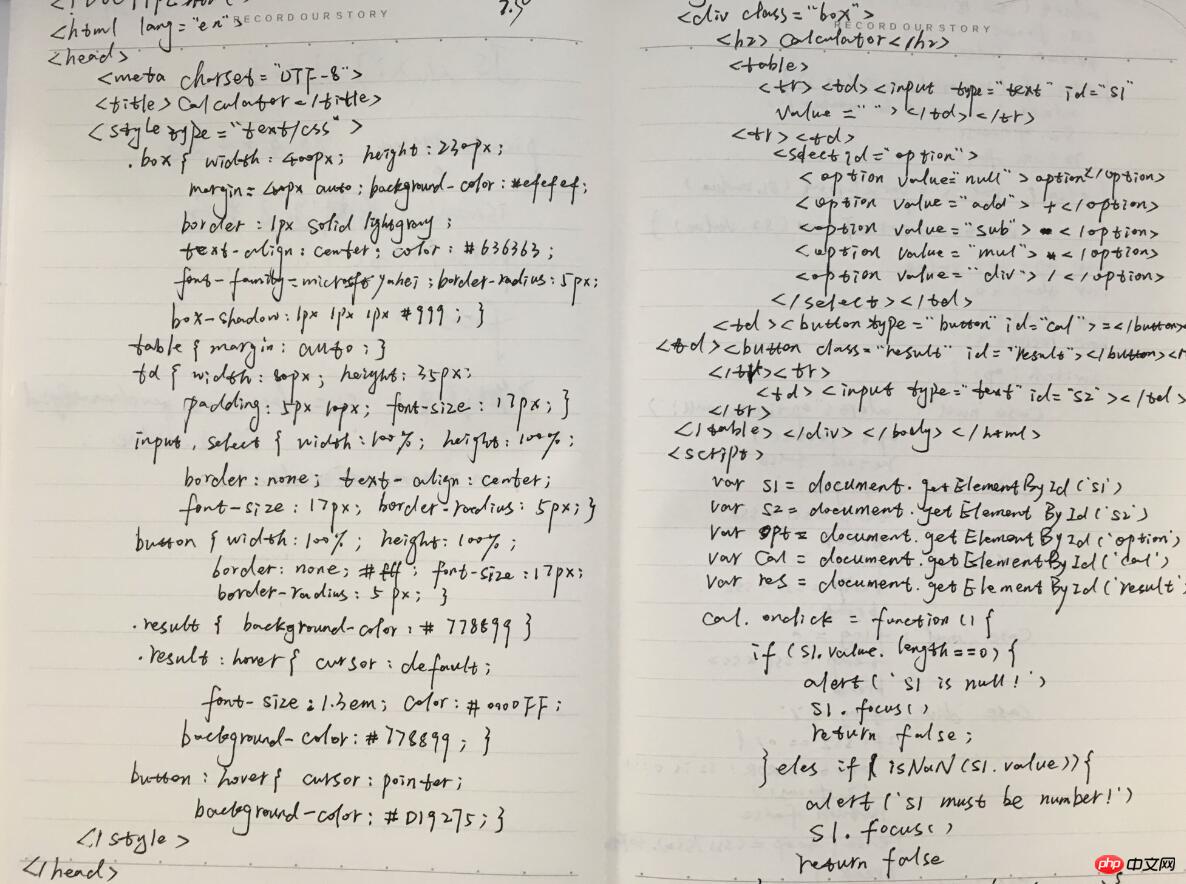 <html lang="en">
RECORD OUR STORY
7.5
<head>
<meta charset="UTF-8">
<title>Calculator</title>
<style type="text/css">
.box{ width: 400px; height: 230px;
margin= 400px auto; background-color: #efefef;
border: 1px solid lightgray;
text-align: center; color: #636363;
font-family=microsft yahei; border-radius: 5px;
box-shadow: 1px 1px 1px #999; }
table{ margin: auto; }
td{ width: 80px; height: 35px;
padding: 5px 10px; font-size: 17px; }
input, select{ width: 100%; height: 100%;
border: none; text-align: center;
font-size: 17px; border-radius: 5px; }
button{ width: 100%; height: 100%;
border: none; #fff; font-size: 17px;
border-radius: 5px; }
.result{ background-color: #778899}
.result:hover{ cursor: default;
font-size: 1.3em; color: #0000FF;
background-color: #778899; }
button:hover{ cursor: pointer;
background-color: #D19275; }
</style>
</head>
<div class="box">
RECORD OUR STORY
<h2> Calculator</h2>
<table>
<tr><td><input type="text" id="s1"
value=""></td></tr>
<tr><td>
<select id="option">
<option value="null">option</option>
<option value="add">+</option>
<option value="sub">-</option>
<option value="mul">*</option>
<option value="div">/</option>
</select></td>
<td><button type="button" id="cal">=</button>
<td><button class="result" id="result"></button>
</tr><tr>
<td><input type="text" id="s2"></td>
</tr>
</table></div></body></html>
<script>
var s1= document.getElementById('s1')
var s2= document.getElementById('s2')
var opt= document.getElementById('option')
var cal= document.getElementById('cal')
var res= document.getElementById('result'
cal.onclick = function(){
if (s1.value.length==0){
alert('s1 is null!')
s1.focus()
return false;
}eles if( isNaN(s1.value)){
alert('s1 must be number!')
s1.focus()
return false
php中文网